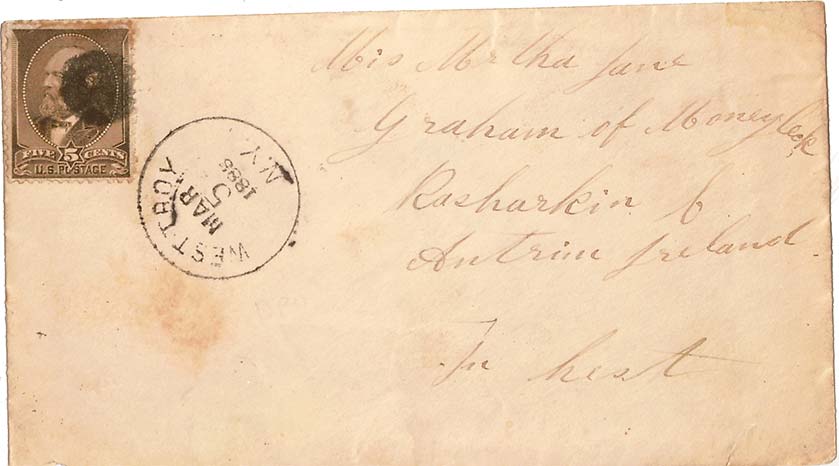 FIVE 5 CENTS
U.S. POSTAGE
WEST TROY
MAR
5
1885
N.Y.
Mis Mrtha Jane
Graham of Moneyleck
Rasharkin C
Antrim Ireland
In hest